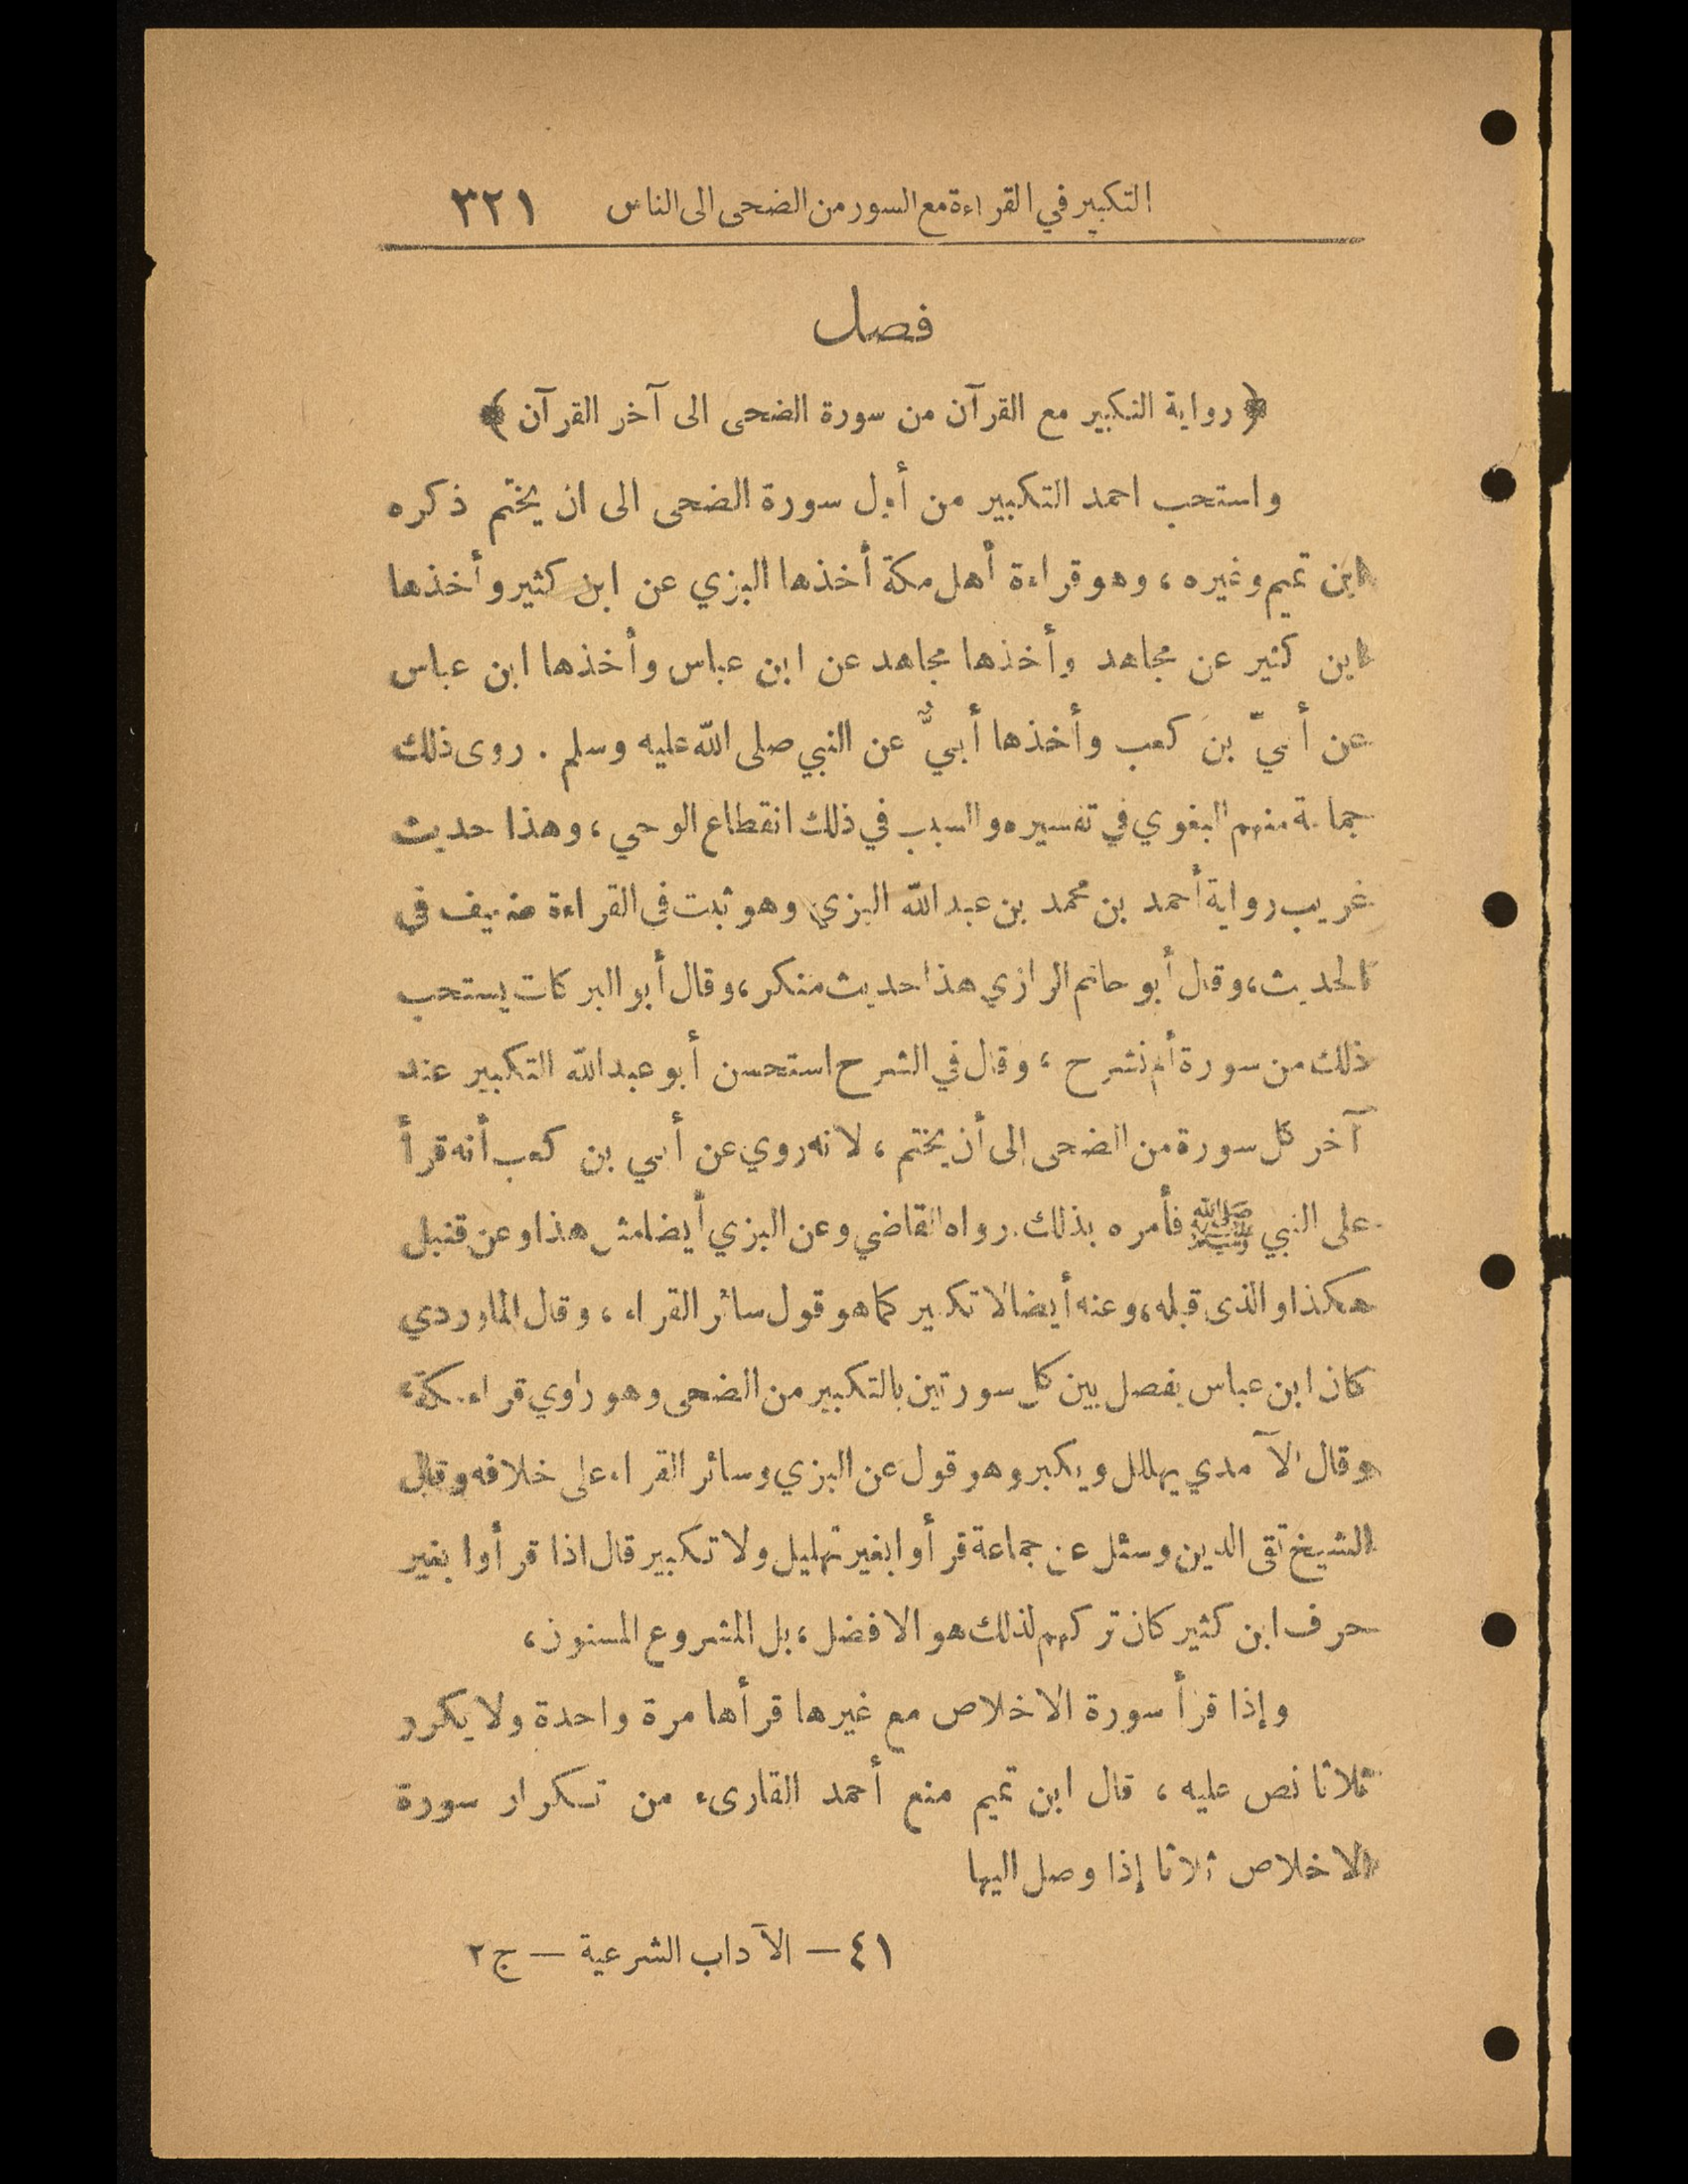 التكبير في القراءة مع السور من الضحى الى الناس ٣٢١
فصل
﴿ رواية التكبير مع القرآن من سورة الضحى الى آخر القرآن ﴾
واستحب احمد التكبير من أول سورة الضحى الى ان يختم ذكره
ابن تميم وغيره ، وهو قراءة أهل مكة أخذها البزي عن ابن كثير وأخذها
ابن كثير عن مجاهد وأخذها مجاهد عن ابن عباس وأخذها ابن عباس
عن أبيّ بن كعب وأخذها أبيٌّ عن النبي صلى الله عليه وسلم . روى ذلك
جماعة منهم البغوي في تفسيره والسبب في ذلك انقطاع الوحي ، وهذا حديث
غريب رواية أحمد بن محمد بن عبد الله البزي وهو ثبت في القراءة ضعيف في
الحديث ، وقال أبو حاتم الرازي هذا حديث منكر ، وقال أبو البركات يستحب
ذلك من سورة ألم نشرح ، وقال في الشرح استحسن أبو عبد الله التكبير عند
آخر كل سورة من الضحى إلى أن يختم ، لانه روي عن أبي بن كعب أنه قرأ
على النبي ﷺ فأمره بذلك . رواه القاضي وعن البزي أيضا مثل هذا وعن قنبل
هكذا والذي قبله ، وعنه أيضا لا تكبير كما هو قول سائر القراء ، وقال الماوردي
كان ابن عباس يفصل بين كل سورتين بالتكبير من الضحى وهو راوي قراء مكة ،
وقال الآمدي يهلل ويكبر وهو قول عن البزي وسائر القراء على خلافه وقال
الشيخ تقي الدين وسئل عن جماعة قرأوا بغير تهليل ولا تكبير قال اذا قرأوا بغير
حرف ابن كثير كان تركهم لذلك هو الافضل ، بل المشروع المسنون ،
وإذا قرأ سورة الاخلاص مع غيرها قرأها مرة واحدة ولا يكرر
ثلاثا نص عليه ، قال ابن تميم منع أحمد القارىء من تكرار سورة
الاخلاص ثلاثا إذا وصل اليها
٤١ — الآداب الشرعية — ج ٢